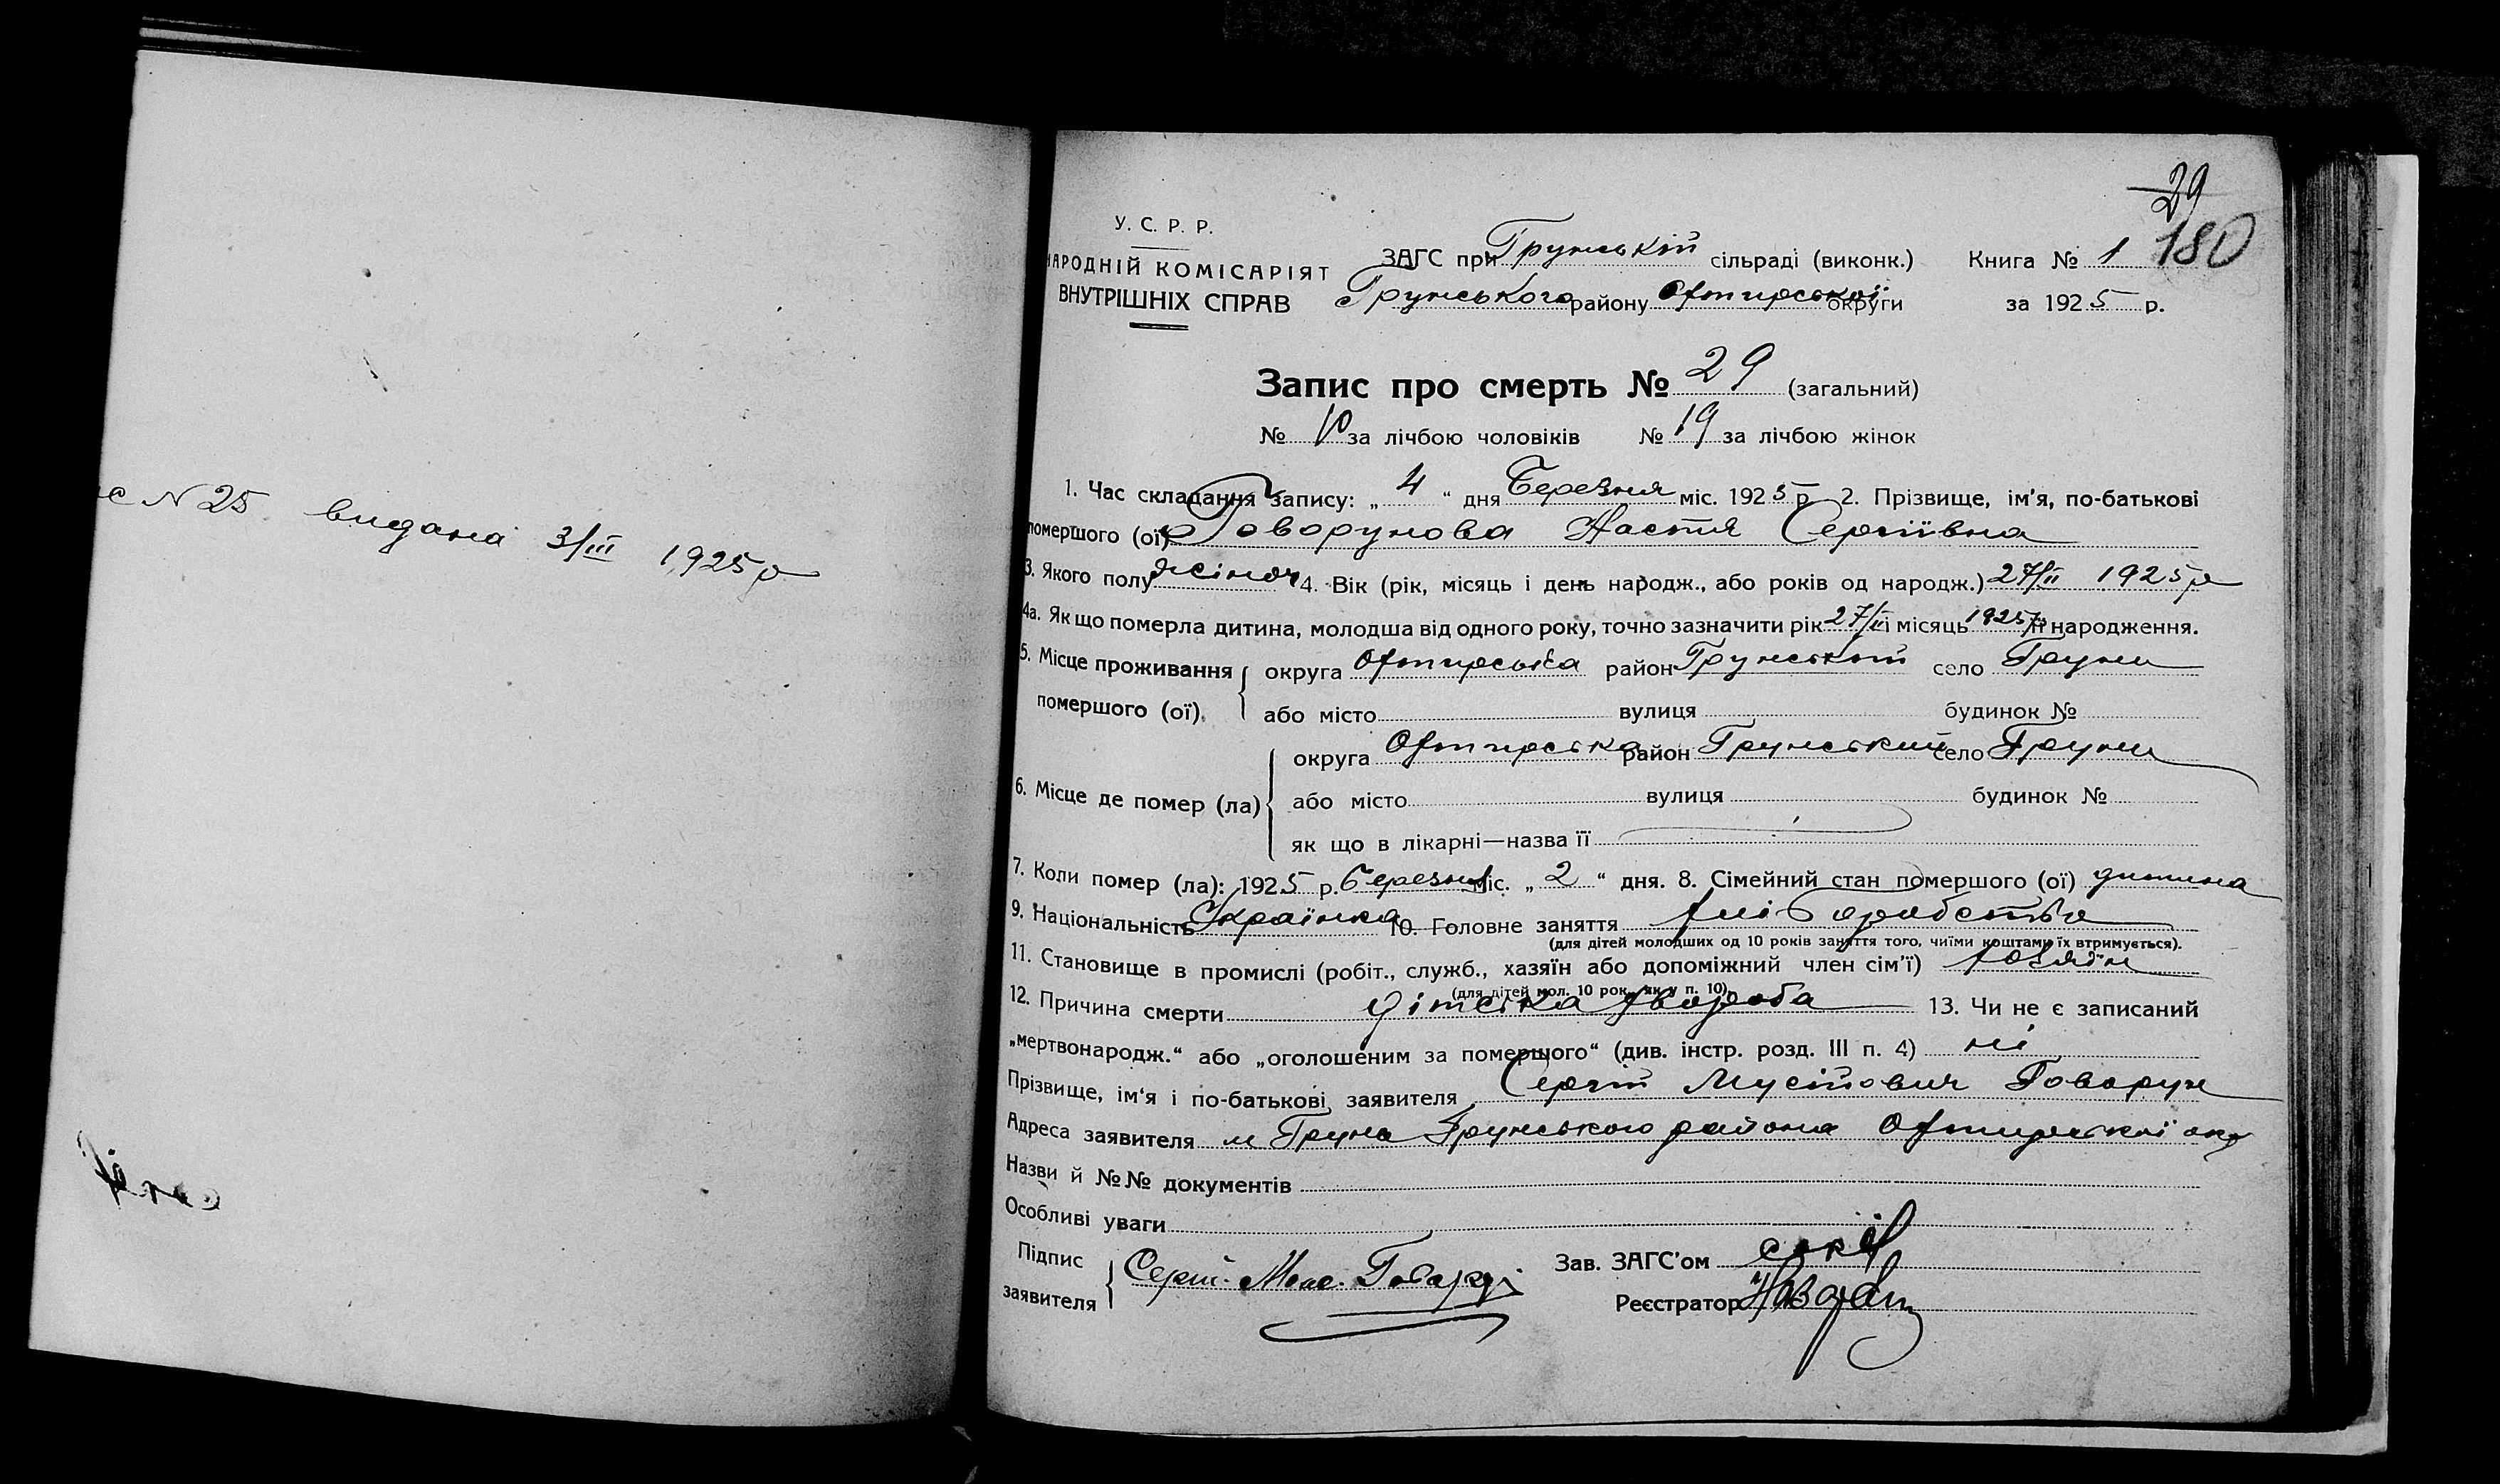 с N 25 видана 3/III 1925 р
29
180
У. С. Р. Р.
НАРОДНІЙ КОМІСАРІЯТ
ВНУТРІШНІХ СПРАВ
ЗАГС при Грунській сільраді (виконк.) Книга № 1
Грунського району Охтирської округи за 1925 р.
Запис про смерть № 29 (загальний)
№ 10 за лічбою чоловіків № 19 за лічбою жінок
1. Час складання запису: „ 4 “ дня Березня міс. 1925 р 2. Прізвище, ім'я, по-батькові
помершого (ої) Говорунова Настя Сергіївна
3. Якого полу жіноч 4. Вік (рік, місяць і день народж., або років од народж.) 27/II 1925 р
4а. Як що померла дитина, молодша від одного року, точно зазначити рік 27/II і місяць 1925 її народження.
5. Місце проживання округа Охтирська район Грунський село Груни
помершого (ої). або місто вулиця будинок №
6. Місце де помер (ла) округа Охтирська район Грунський село Груни
або місто вулиця будинок №
як що в лікарні—назва її
7. Коли помер (ла): 1925 р. Березня міс. „ 2 “ дня. 8. Сімейний стан помершого (ої) дитина
9. Національність Українка 10. Головне заняття хліборобство
(для дітей молодших од 10 років заняття того, чиїми коштами їх втримується).
11. Становище в промислі (робіт., служб., хазяїн або допоміжний член сім'ї) хозяїн
(для дітей мол. 10 рок., як у п. 10)
12. Причина смерти дітська хвороба 13. Чи не є записаний
„мертвонародж.“ або „оголошеним за помершого“ (див. інстр. розд. III п. 4) ні
Прізвище, ім'я і по-батькові заявителя Сергій Мусійович Говорун
Адреса заявителя м Груне Грунського района Охтирської окр
Назви й №№ документів
Особливі уваги
Підпис
заявителя Сергій Говорун
Зав. ЗАГС'ом
Реєстратор